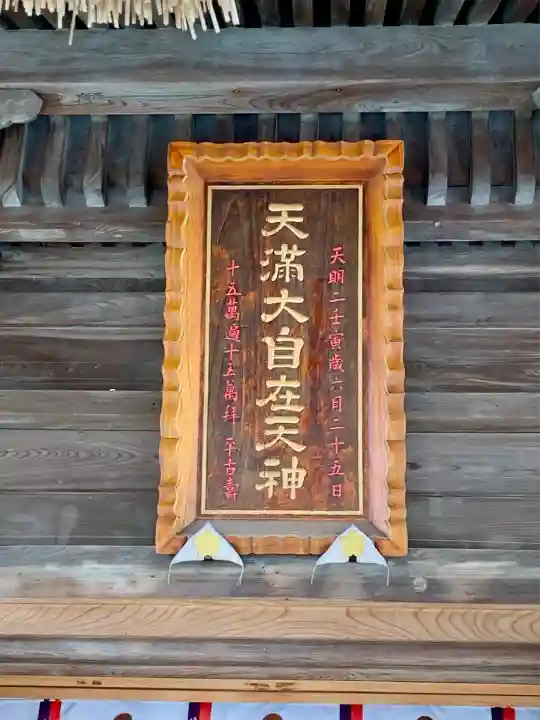 天明二壬寅歳六月二十五日
天満大自在天神
十五萬遍十五萬拜 平古壽